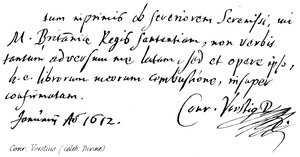 tum inprimis ob severiorem Sereniss. ui
M. Britaniæ Regis sententiam, non verbis
tantum adversum me latam, sed et opere ipso,
h.e. librorum meorum combustione, insuper
confirmatam.
Conr. Vorstius D.
Aº 1612.
Conr. Vorstius (celeb. Divine)